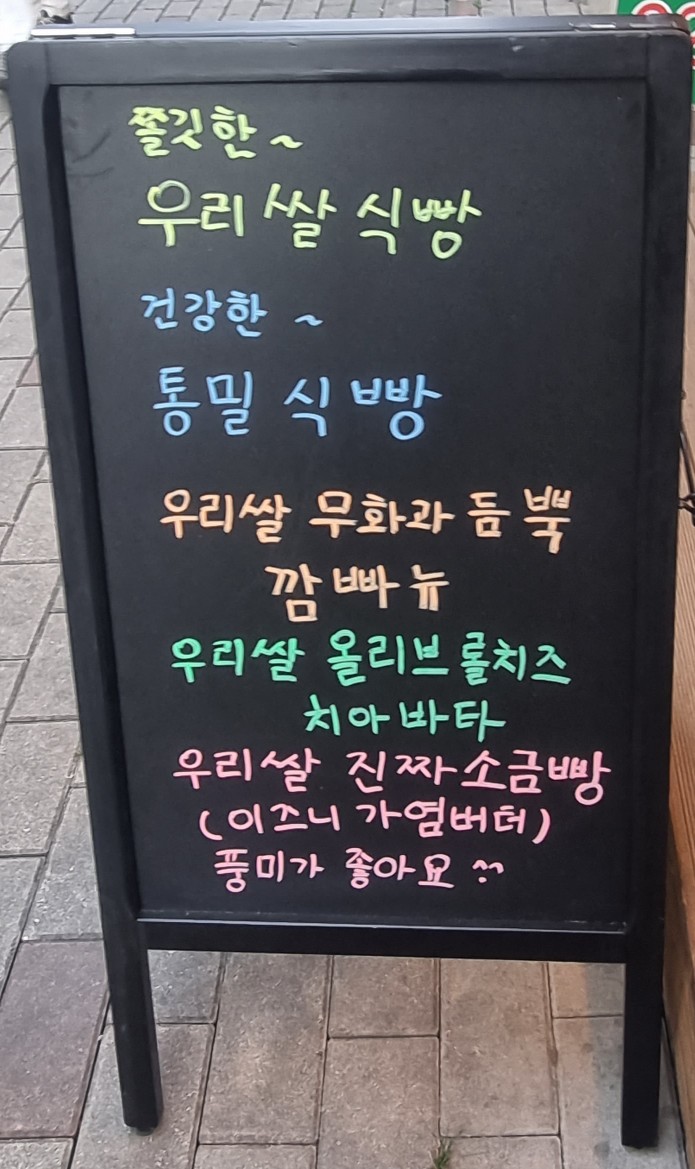 쫄깃한~
우리쌀식빵
건강한 ~
통밀 식빵
우리쌀 무화과듬뿍
깜빠뉴
우리쌀 올리브롤치즈
치아바타
우리쌀 진짜소금빵
(이즈니 가염버터)
풍미가 좋아요 ^^